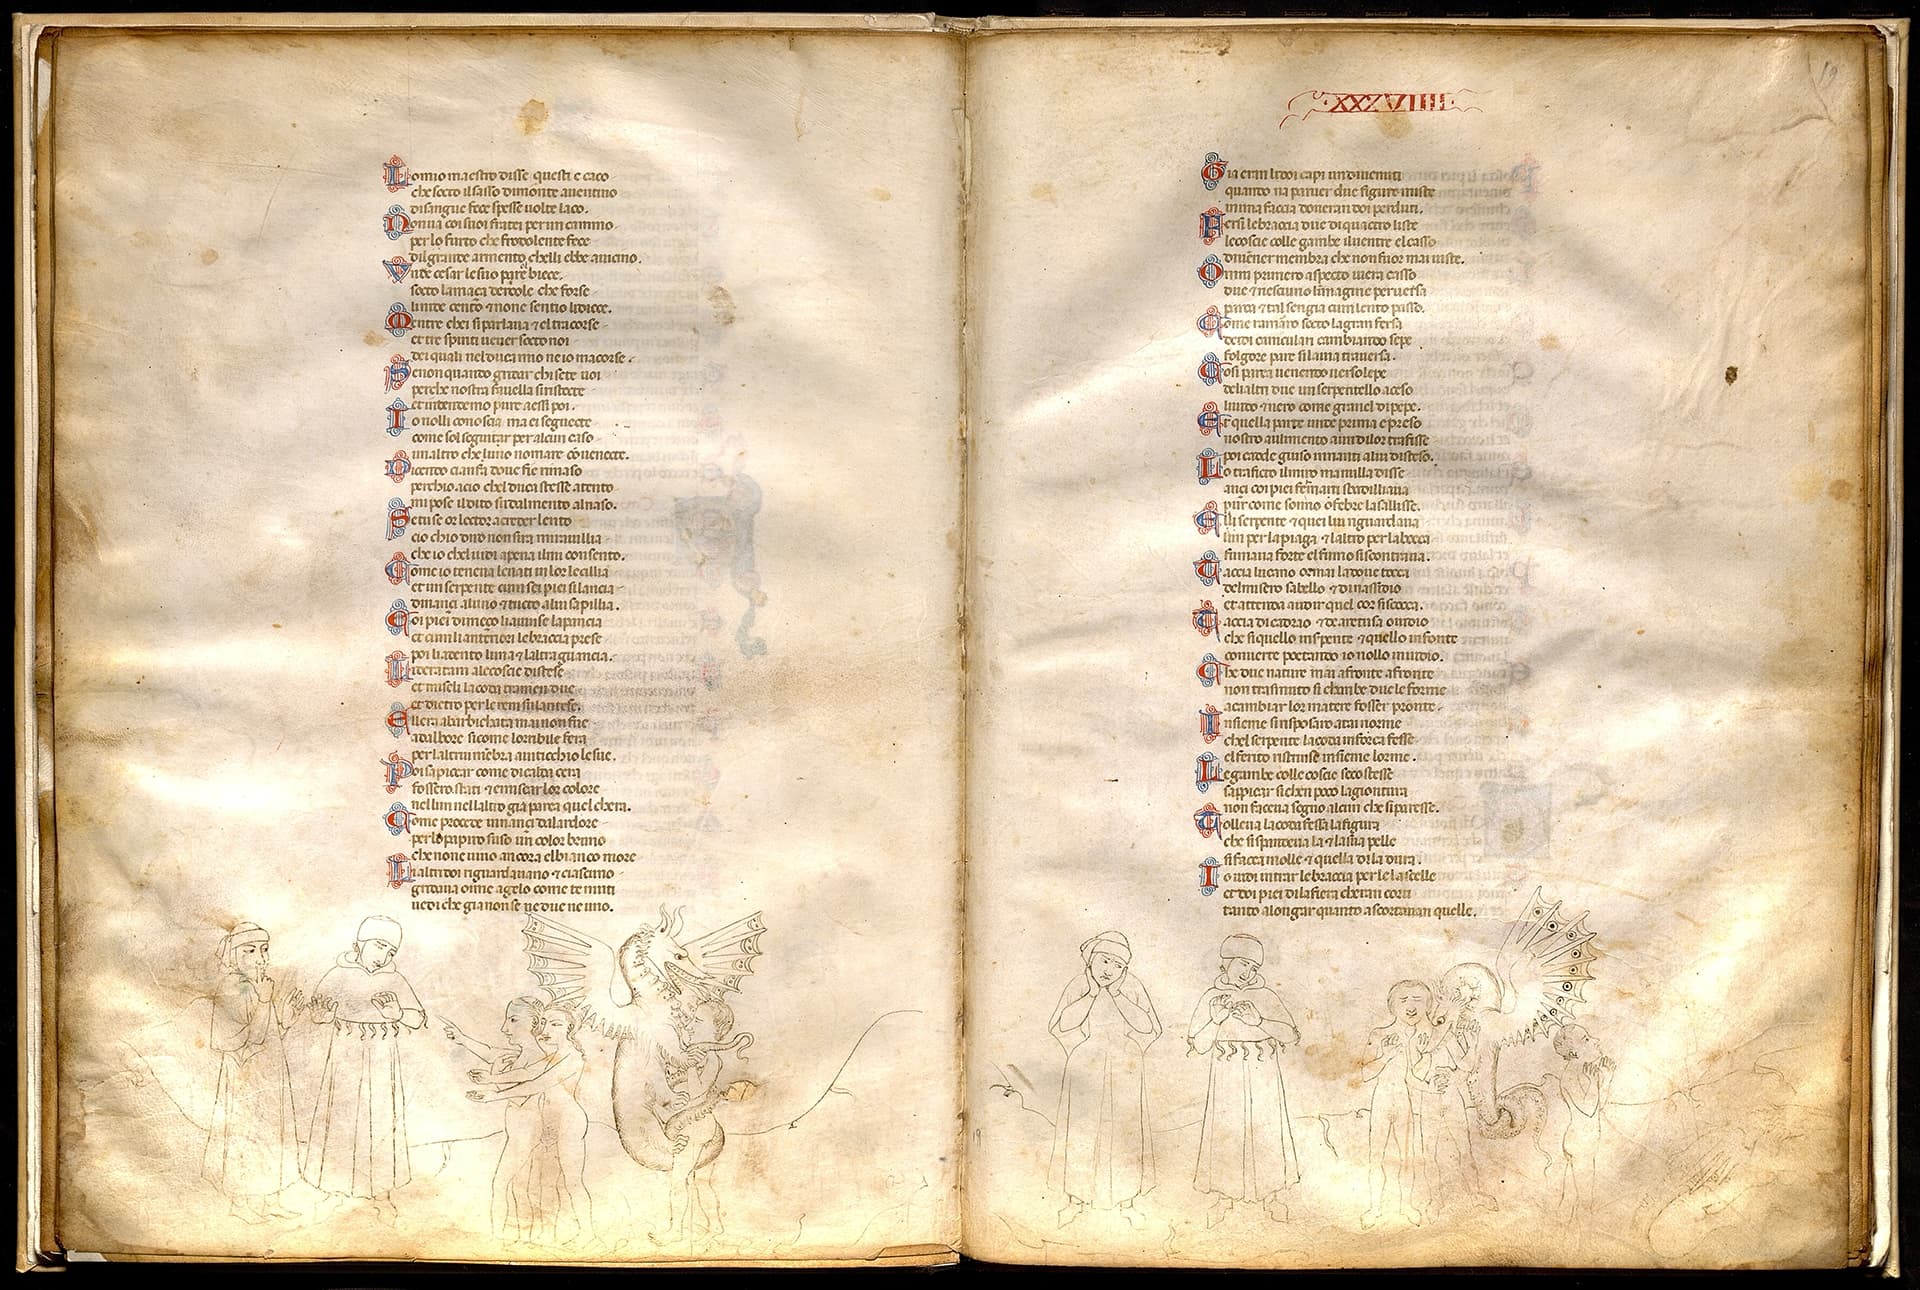 Lo mio maestro disse questi e caco
che socto il sasso di monte auentino
di sangue fece spesse uolte laco.
Non ua coi suoi fratei per un camino
per lo furto che frodolente fece
del grande armento chelli ebbe auicino.
Vnde cesar le sue biece
socto la maça dercole che forse
li nde cento & none sentio le diece.
Mentre chei si parlaua & el tracorse
et tre spiriti uener socto noi
dei quali nel duca mio ne io macorse
Se non quando gridar chi sete uoi
perche nostra fauella si ristecte
et intendemo pure a essi poi.
Io nolli conoscia ma ei seguecte
come sol seguitar per alcun caso
un altro che luno nomare conuenecte.
Dicendo cianfa doue fie rimaso
perchio acio chel duca stesse atento
mi pose il dito su dal mento al naso.
Se tu se or lector a creder lento
cio chio diro non sira marauillia
che io chel uidi apena il mi consento.
Come io tenea leuati in lor le cillia
et un serpente con sei pici si lancia
dinançi aluno & tucto a lui sapillia.
Coi piei di meço li auinse la pancia
et cum li anteriori le braccia prese
poi li adento luna & laltra guancia.
Li deratani ale coscie distese
et miseli la coda tramendue
et dietro per le ren su la ritese.
Ellera abarbichata mai non fue
ad albore si come lorribile fiera
per laltrui membra auiticchio le sue.
Poi sapiccar come di calda cera
fossero stati & miscar lor colore
ne lun nellaltro gia parea quel chera.
Come procede innançi dalardore
per lo papiro suso un color bruno
che none nero ancora el bianco more
Li altri doi riguardauano & ciascuno
gridaua oime agelo come te muti
uedi che gia non se ne due ne uno.
19
·XXXVIIII·
Gia eran li doi capi un diuenuti
quando na paruer due figure miste
in una faccia doueran doi perduti.
Fersi le braccia due di quactro liste
le coscie colle gambe il uentre el casso
diuener membra che non fuor mai uiste.
Onni primero aspecto iuiera casso
due & nesciuno limagine peruersa
parea & tal sengia cum lento passo.
Come ramarro socto la gran fersa
dei di caniculari cambiando sepe
folgore pare si la uia trauersa.
Cosi parea uenendo uerso lepe
deli altri due un serpentello aceso
liuido & nero come granel di pepe.
Et quella parte unde prima e preso
nostro alimento a un di lor trafisse
poi cadde giuso innanti a lui disteso.
Lo trafitto il miro ma nulla disse
ançi coi piei fermati sbadilliaua
pur come sonno o febre lasallisse.
Elli il serpente & quei lui riguardaua
lun per la piaga & laltro per la bocca
fumaua forte el fumo si scontraua.
Taccia lucano ormai la doue tocca
del misero sabello & di nassidio
et attenda audir quel cor si scocca.
Taccia di cadmo & de aretusa ouidio
che si quello in serpente & quello in fonte
conuerte poetando io nollo inuidio.
Che due nature mai a fronte a fronte
non trasmuto si chambe due le forme
a cambiar lor matere fosser pronte.
Insieme si risposaro a tai norme
chel serpente la coda in forca fesse
el ferito ristrinse insieme lorme.
Le gambe colle coscie seco stesse
sappicar si che n poco la giontura
non facea segno alcun che si paresse.
Tollea la coda fessa la figura
che si spendeua la & la sua pelle
si facea molle & quella di la dura.
Io uidi intrar le braccia per le lascelle
et doi piei di la fiera cheran corti
tanto alongar quanto a scortauan quelle.
19